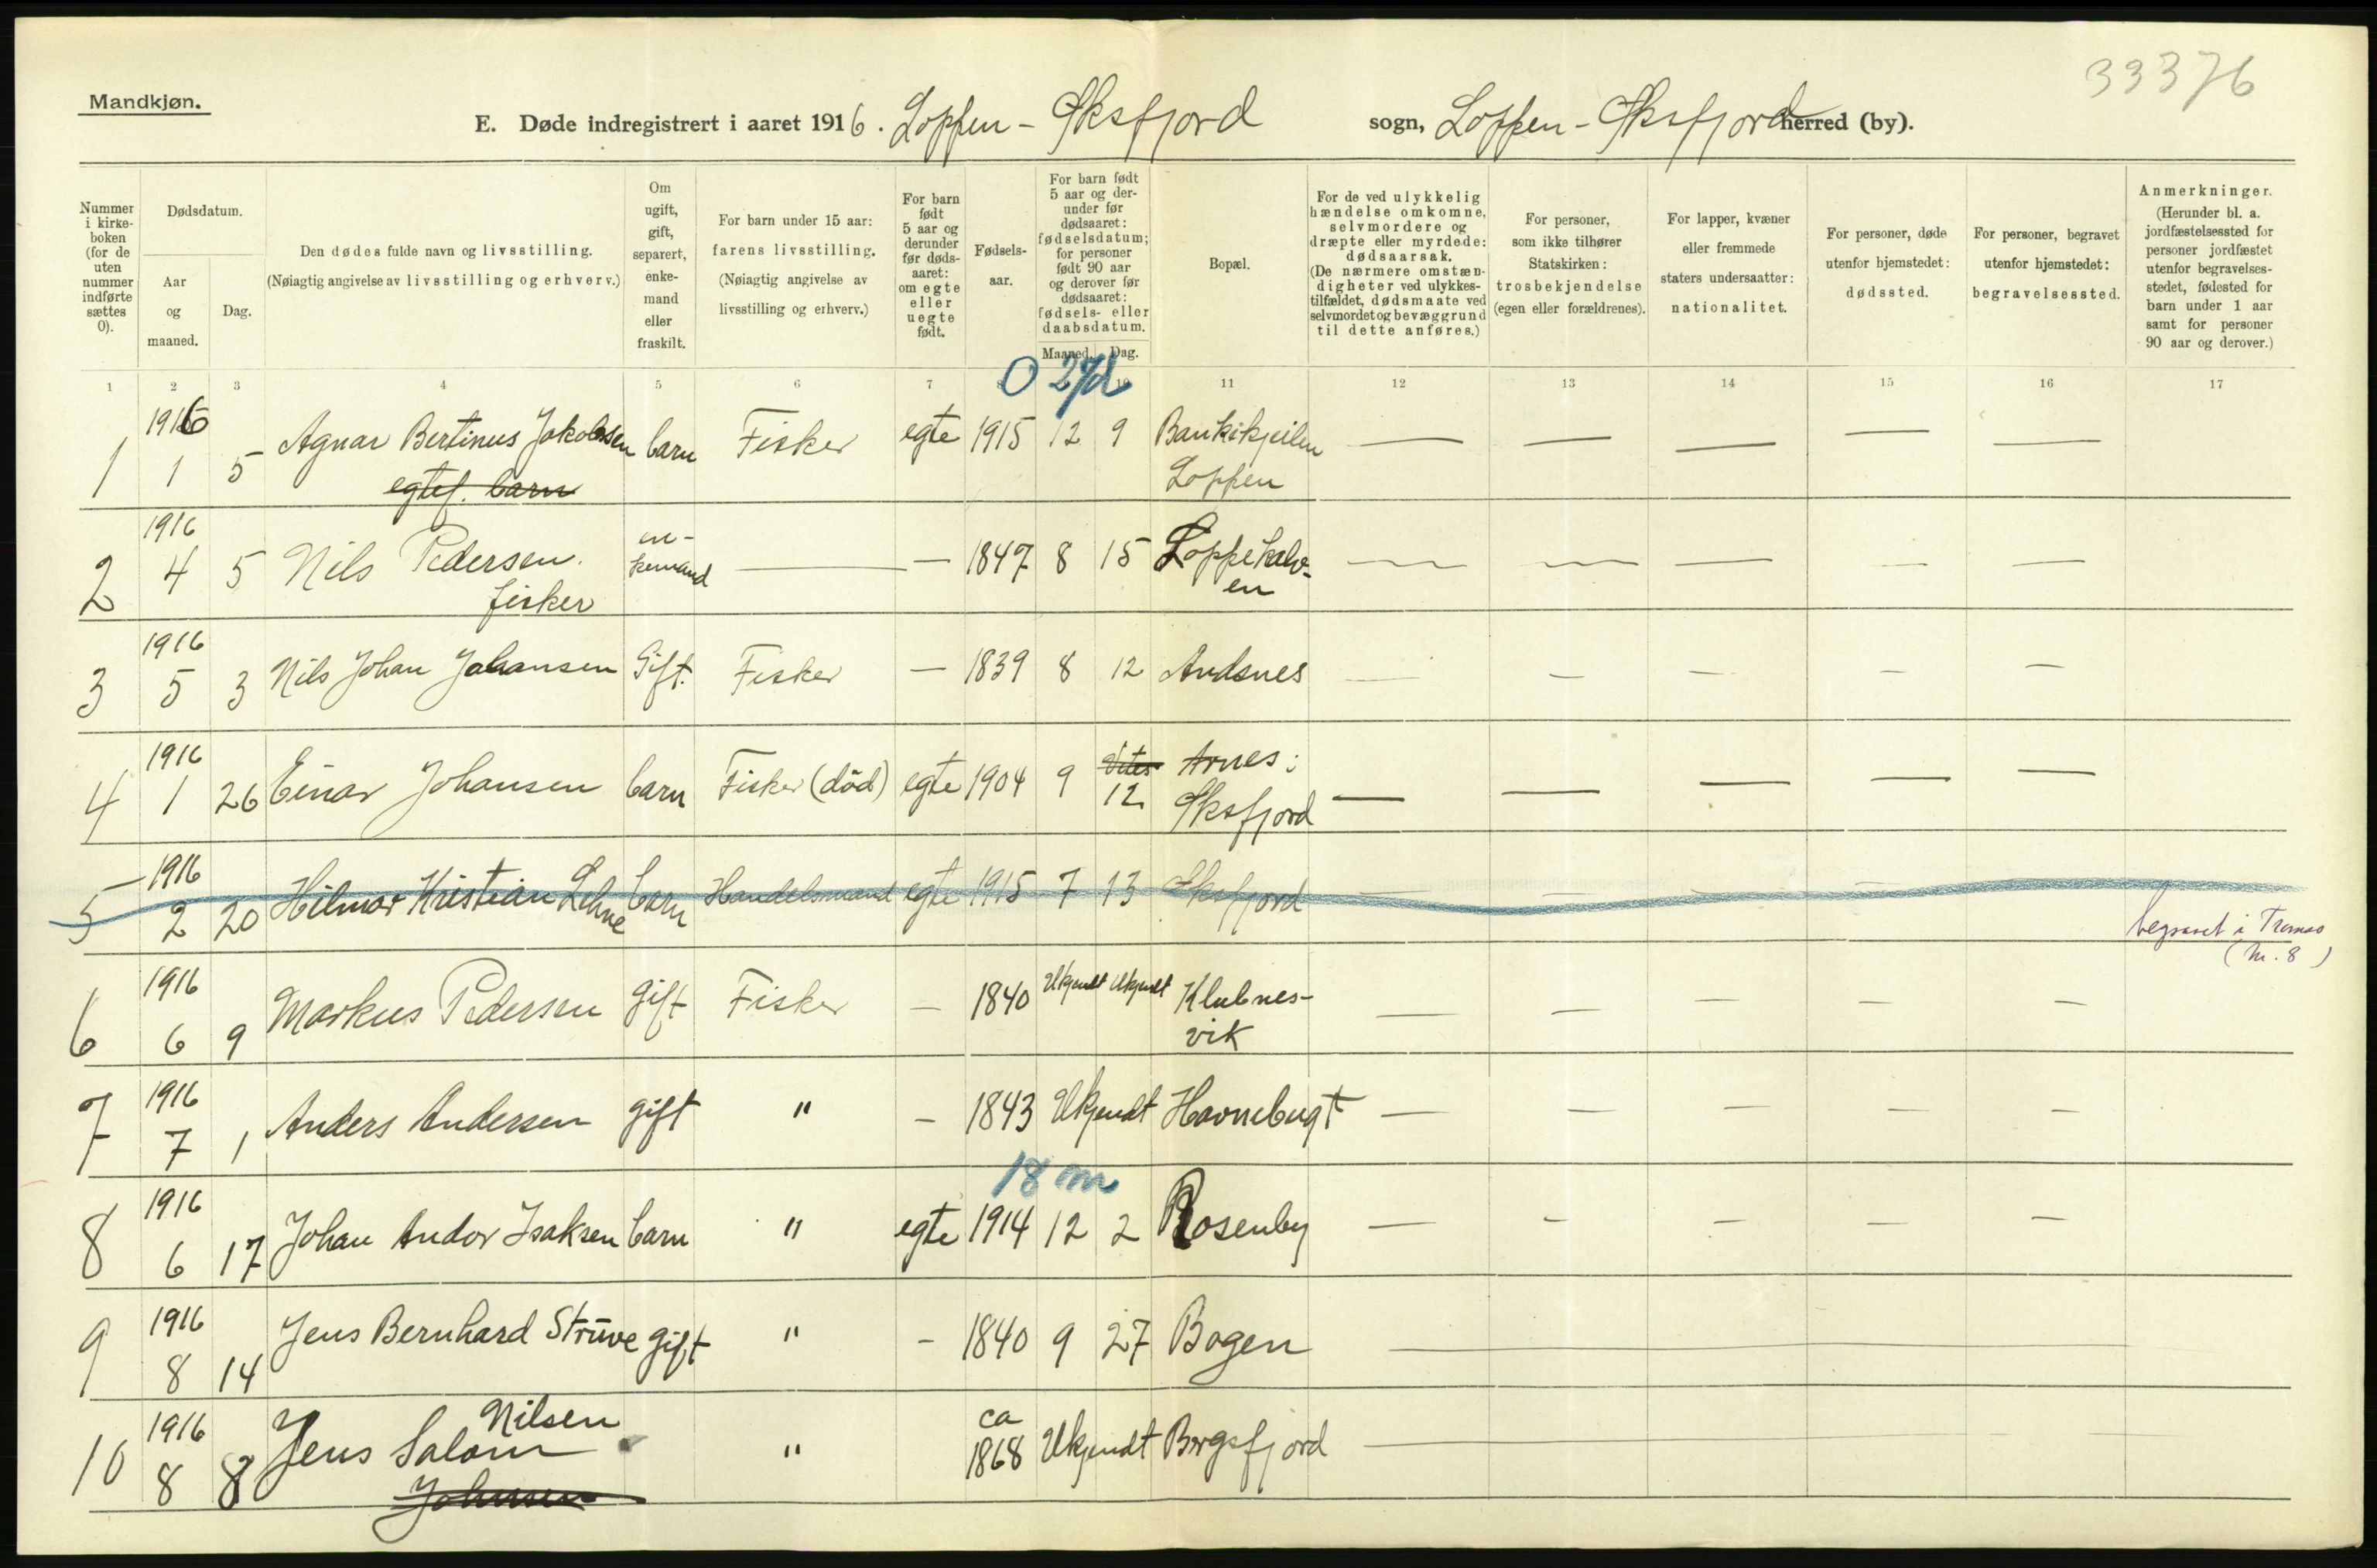 33376
Mandkjøn.
E. Døde indregistrert i aaret 1916. Loppen - Øksfjord sogn, Loppen - Øksfjord herred (by).
Nummer i kirke-boken (for de uten nummer indførte sættes 0).
Dødsdatum.
Aar og maaned.
Dag.
Den dødes fulde navn og livsstilling.
(Nøiagtig angivelse av livsstilling og erhverv.)
Om ugift, gift, separert, enke-mand eller fraskilt.
For barn under 15 aar:
farens livsstilling.
(Nøiagtig angivelse av livsstilling og erhverv.)
For barn født 5 aar og derunder før døds-aaret: om egte eller uegte født.
Fødsels-aar.
For barn født 5 aar og der-under før dødsaaret: fødselsdatum; for personer født 90 aar og derover før dødsaaret: fødsels- eller daabsdatum.
Maaned. Dag.
Bopæl.
For de ved ulykkelig hændelse omkomne, selvmordere og dræpte eller myrdede: dødsaarsak.
(De nærmere omstæn-digheter ved ulykkes-tilfældet, dødsmaate ved selvmordet og bevæggrund til dette anføres.)
For personer, som ikke tilhører Statskirken: trosbekjendelse (egen eller forældrenes).
For lapper, kvæner eller fremmede staters undersaatter: nationalitet.
For personer, døde utenfor hjemstedet: dødssted.
For personer, begravet utenfor hjemstedet: begravelsessted.
Anmerkninger.
(Herunder bl. a. jordfæstelsessted for personer jordfæstet utenfor begravelses-stedet, fødested for barn under 1 aar samt for personer 90 aar og derover.)
1 2 3 4 5 6 7 8 10 11 12 13 14 15 16 17
0 27d
1 1916 1 5 Agnar Bertinus Jakobsen barn Fisker egte 1915 12 9 Bankekjeilen — — — — —
egtef. barn Loppen
2 1916 4 5 Nils Pedersen. en- — — 1847 8 15 Loppekalv- — — — — —
fisker kemand en
3 1916 5 3 Nils Johan Johansen Gift. Fisker — 1839 8 12 Andsnes — — — — —
4 1916 1 26 Einar Johansen barn Fisker (död) egte 1904 9 12 Arnes; — — — — —
Øksfjord
5 1916 2 20 Hilmar Kristian Lehne barn Handelsmand egte 1915 7 13 Øksfjord — — — —
begravet i Tromsø
(M. 8)
6 1916 6 9 Markus Pedersen gift Fisker — 1840 Ukjendt Ukjendt Klubnes- — — — — —
vik
7 1916 7 1 Anders Andersen gift " — 1843 Ukjendt Havnebugt — — — — —
18 m
8 1916 6 17 Johan Andor Isaksen barn " egte 1914 12 2 Rosenby — — — — —
9 1916 8 14 Jens Bernhard Strüve gift " - 1840 9 27 Bogen —
10 1916 8 8 Jens Salom Nilsen " ca 1868 Ukjendt Bergsfjord —
Johnsen